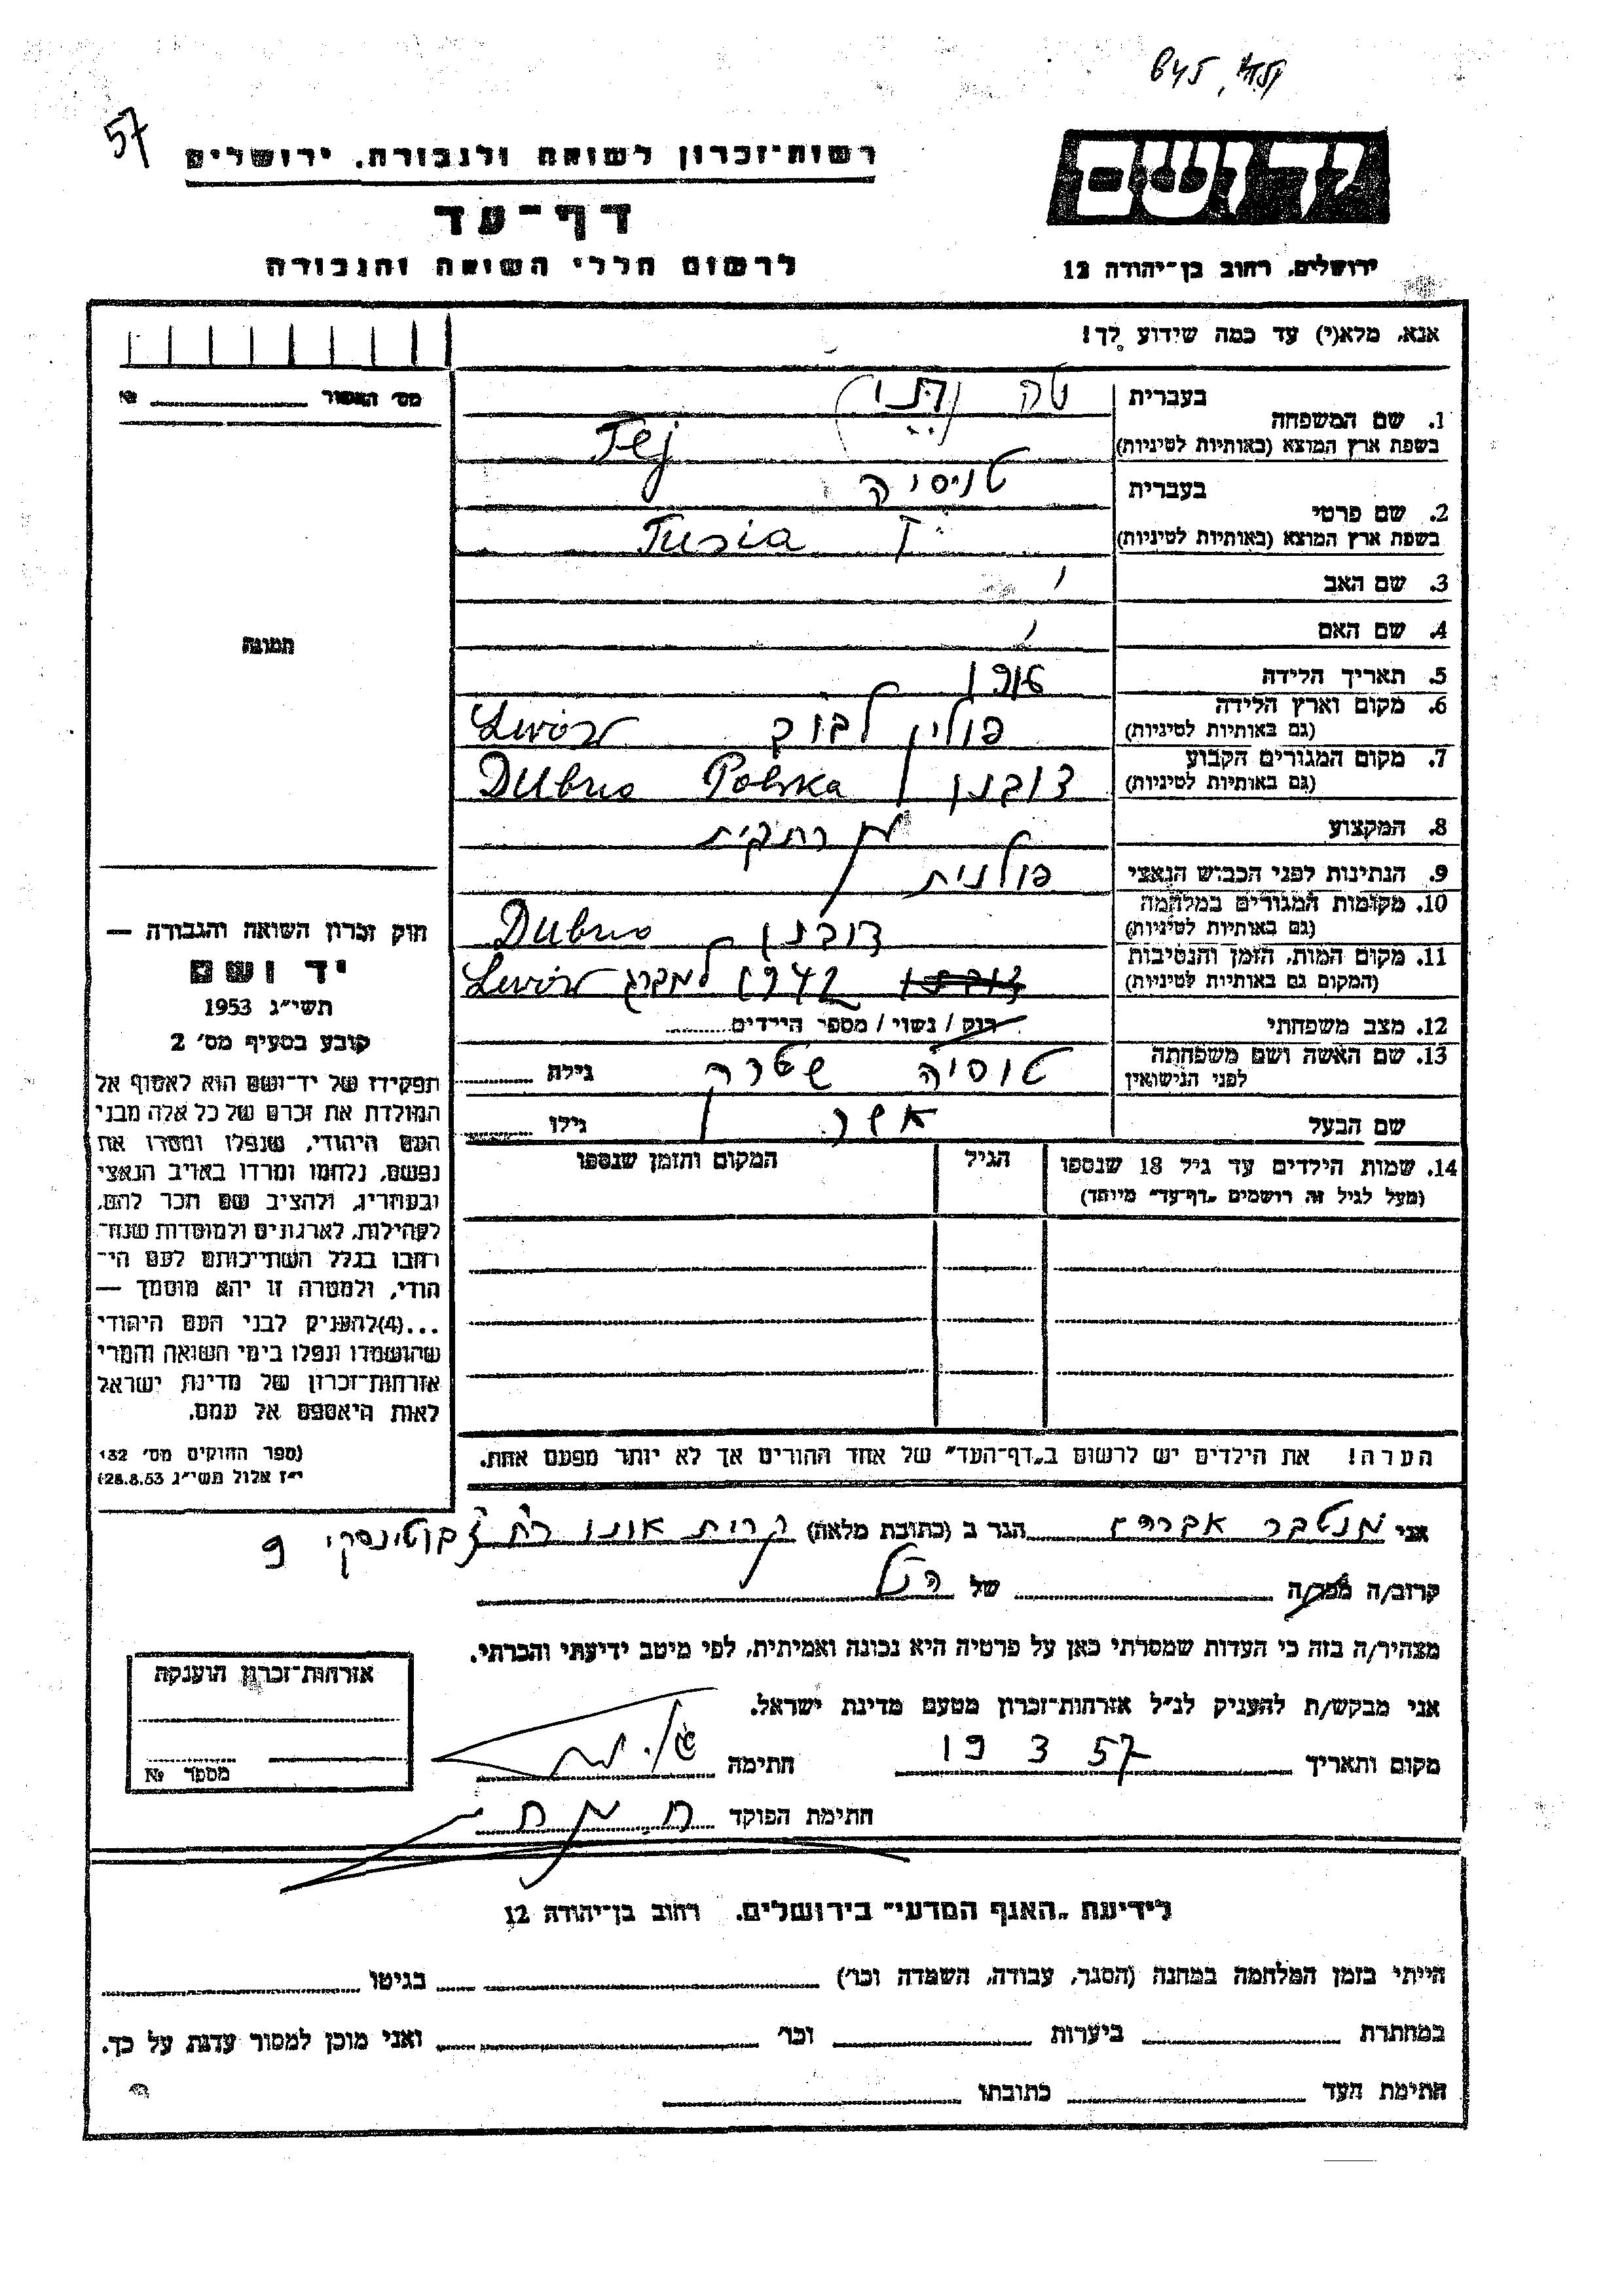 57
רשות־זכרון לשואה ולגבורה, ירושלים
דף־עד
לרשום חללי השואה והגבורה
יד ושם
ירושלים, רחוב בן־יהודה 12
אנא, מלא(י) עד כמה שידוע לך!
מס' האסור №
1. שם המשפחה בעברית טה
בשפת ארץ המוצא (באותיות לטיניות) Tej
2. שם פרטי בעברית טוסיה
בשפת ארץ המוצא (באותיות לטיניות) Tusia
3. שם האב
4. שם האם
5. תאריך הלידה
6. מקום וארץ הלידה (גם באותיות לטיניות) פולין לבוב Lwów
7. מקום המגורים הקבוע (גם באותיות לטיניות) דובנו Dubno Polska
8. המקצוע
9. הנתינות לפני הכבוש הנאצי פולנית
10. מקומות המגורים במלחמה (גם באותיות לטיניות) דובנו Dubno
11. מקום המות, הזמן והנסיבות (המקום גם באותיות לטיניות) דובנו 1942 למברג Lwów
12. מצב משפחתי רוק / נשוי / מספר הילדים
13. שם האשה ושם משפחתה לפני הנישואין טוסיה שטרה גילה
שם הבעל אשר גילו
14. שמות הילדים עד גיל 18 שנספו הגיל המקום והזמן שנספו
(מעל לגיל זה רושמים „דף־עד" מיוחד)
הערה! את הילדים יש לרשום ב„דף־העד" של אחד ההורים אך לא יותר מפעם אחת.
תמונה
חוק זכרון השואה והגבורה —
יד ושם
תשי"ג 1953
קובע בסעיף מס' 2
תפקידו של יד־ושם הוא לאסוף אל
המולדת את זכרם של כל אלה מבני
העם היהודי, שנפלו ומסרו את
נפשם, נלחמו ומרדו באויב הנאצי
ובעוזריו, ולהציב שם וזכר להם,
לקהילות, לארגונים ולמוסדות שנח־
רבו בגלל השתייכותם לעם הי־
הודי, ולמטרה זו יהא מוסמך —
...(4)להעניק לבני העם היהודי
שהושמדו ונפלו בימי השואה והמרי
אזרחות־זכרון של מדינת ישראל
לאות היאספם אל עמם.
(ספר החוקים מס' 132
י"ז אלול תשי"ג 28.8.53)
אני מנטבר אברהם הגר ב (כתובת מלאה) קרית אונו רח' ז'בוטינסקי 9
קרוב/ה מכר/ה של הנ"ל
מצהיר/ה בזה כי העדות שמסרתי כאן על פרטיה היא נכונה ואמיתית, לפי מיטב ידיעתי והכרתי.
אני מבקש/ת להעניק לנ"ל אזרחות־זכרון מטעם מדינת ישראל.
מקום ותאריך 19 3 57 חתימה
חתימת הפוקד
אזרחות־זכרון הוענקה
מספר №
לידיעת „האגף המדעי" בירושלים, רחוב בן־יהודה 12
הייתי בזמן המלחמה במחנה (הסגר, עבודה, השמדה וכו') בגיטו
במחתרת ביערות וכו' ואני מוכן למסור עדות על כך.
חתימת העד כתובתו